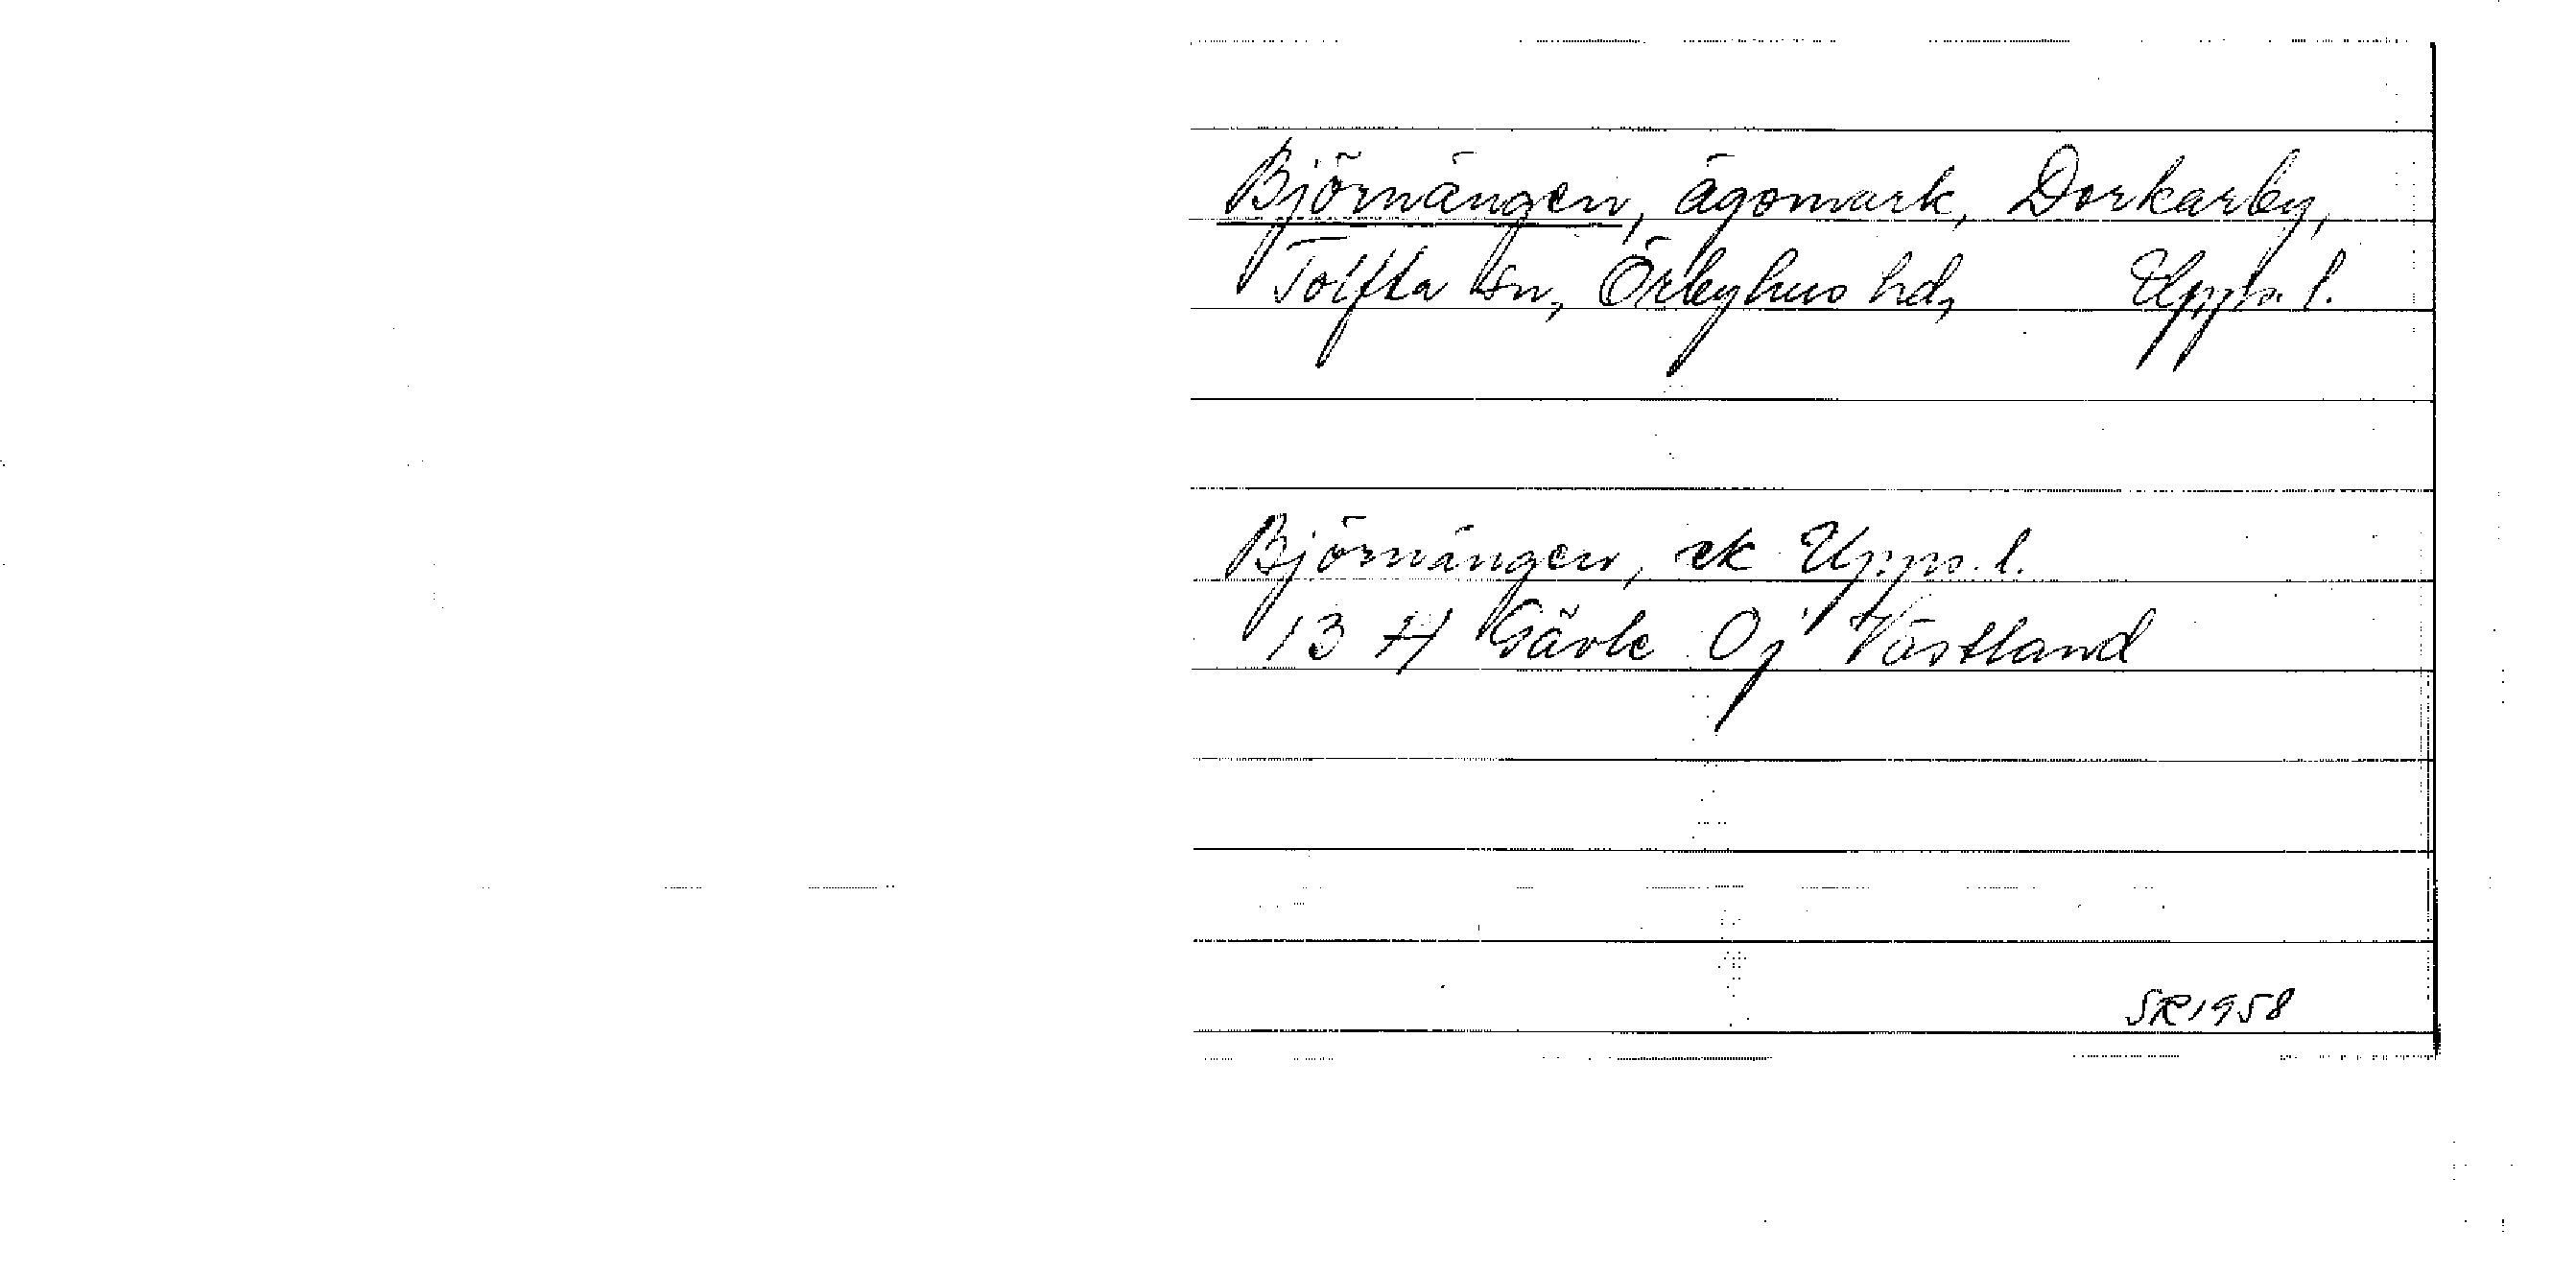 Björnängen, ägomark, Dorkarby,
Tolfta sn, Örbyhus hd, Upps. l.
Björnängen, ek Upps. l.
13 H Gävle 0j Västland
SR 1958